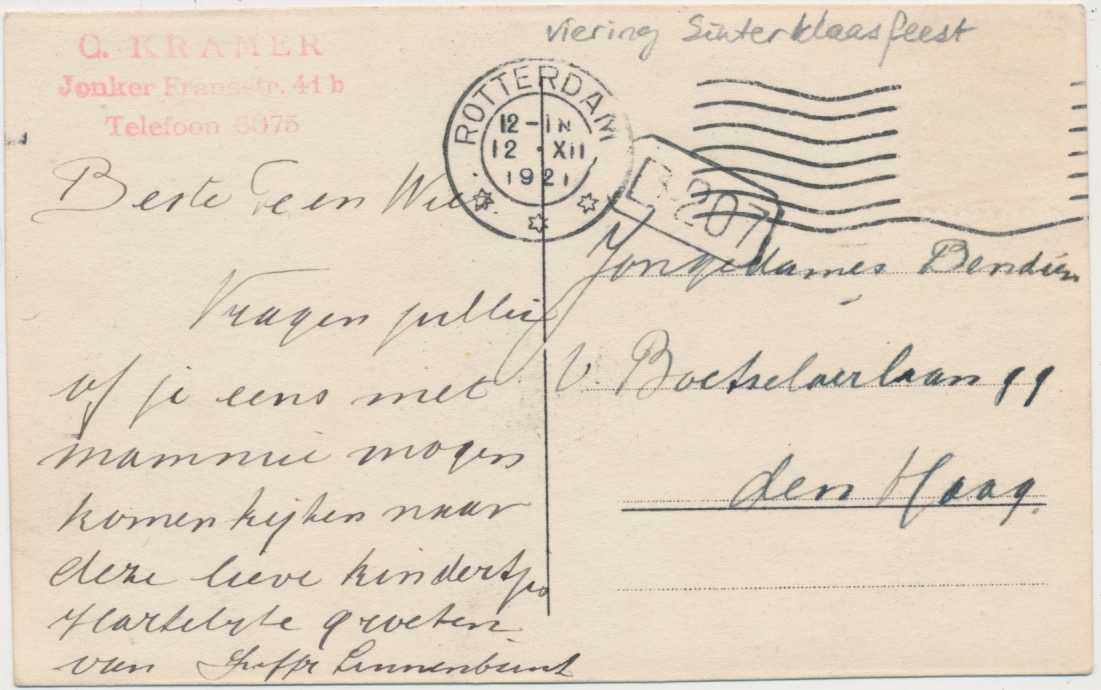 viering Sinterklaasfeest
C. KRAMER
Jonker Fransstr. 41 b
Telefoon 6075
ROTTERDAM
12-1N
12 · XII
1921
207
Beste en Wie
Vragen jullie
of je eens met
mammie mogen
komen kijken naar
deze lieve kindertjes
Hartelijke groeten
van Juffr
Jongedames Bendien
v. Boetselaerlaan 99
den Haag.